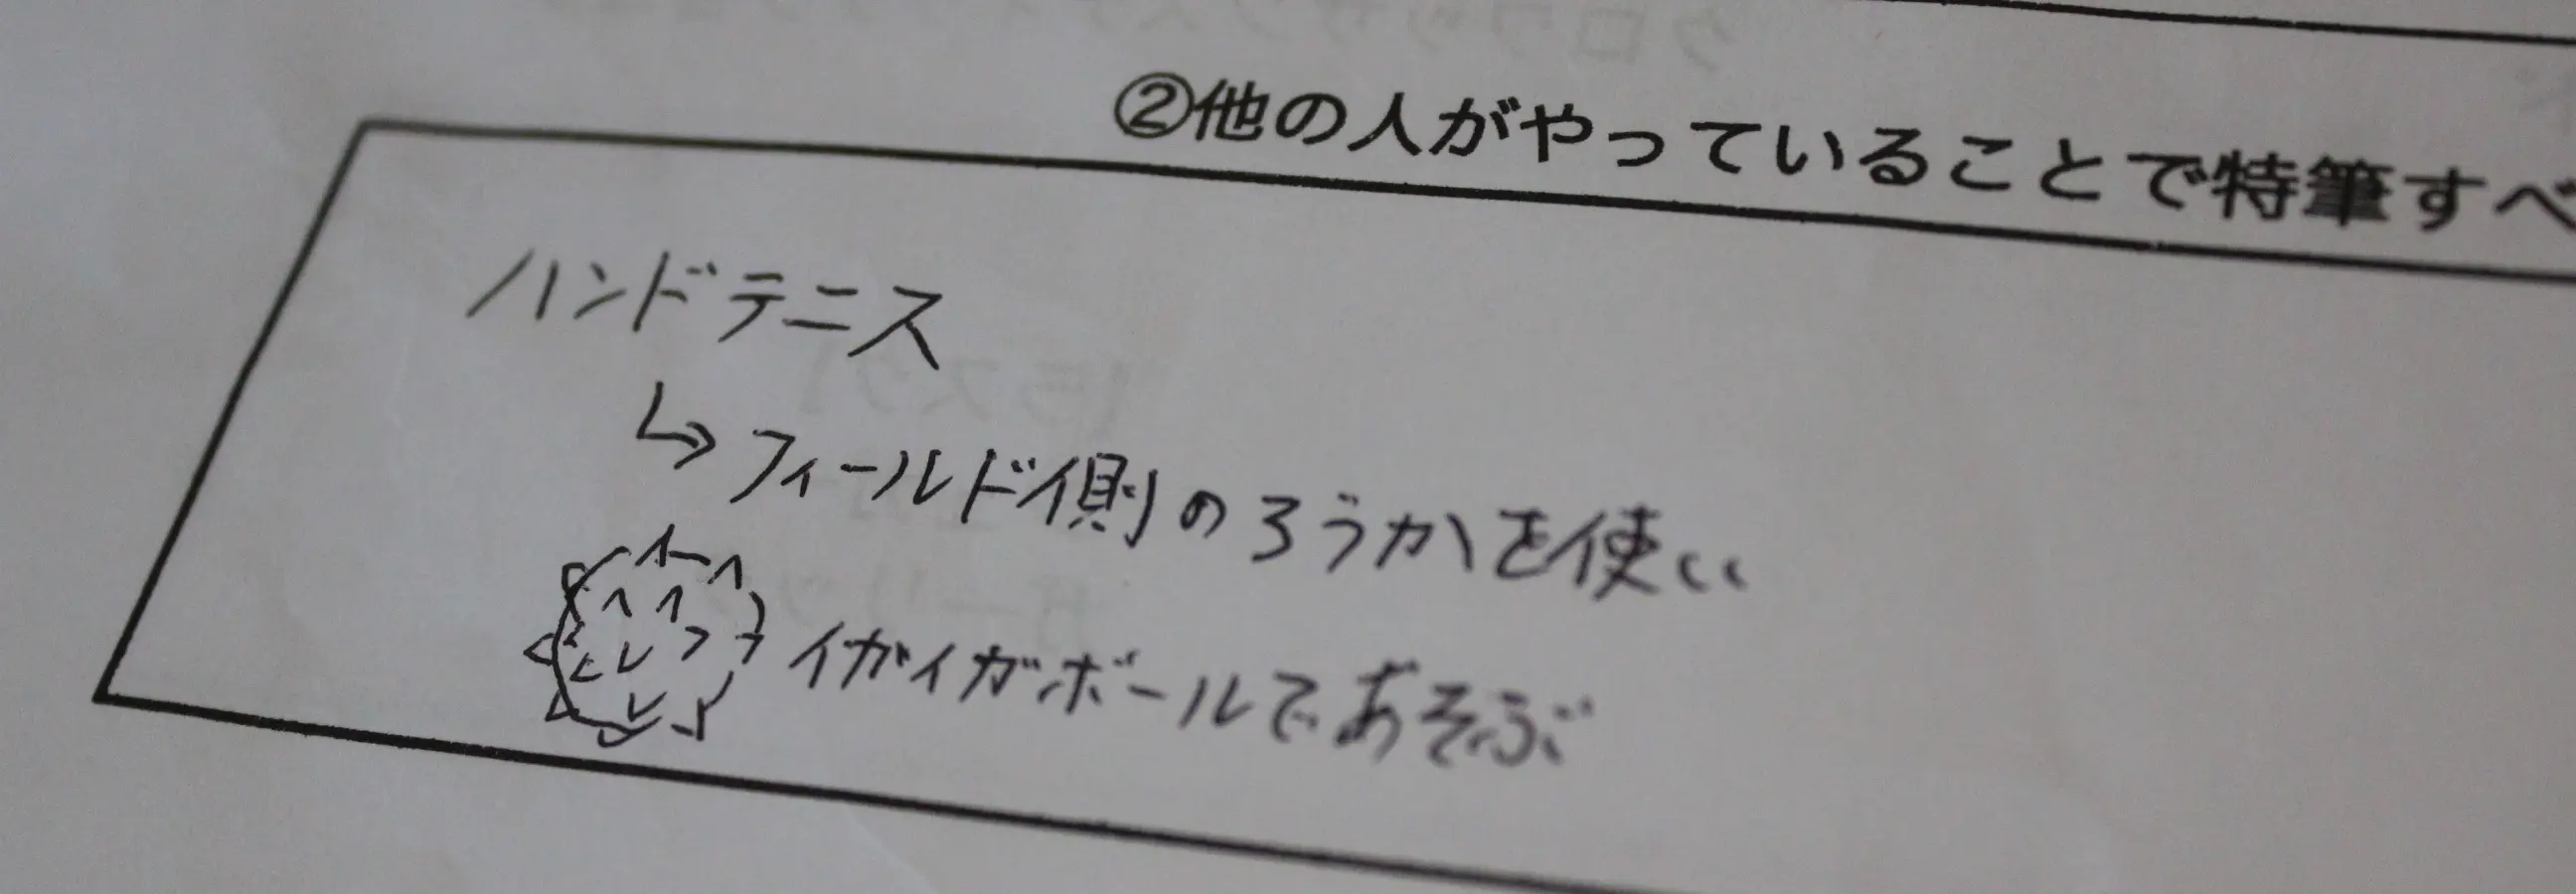 ②他の人がやっていることで特筆すべ
ハンドテニス
↳フィールド側のろうかを使い
イガイガボールであそぶ